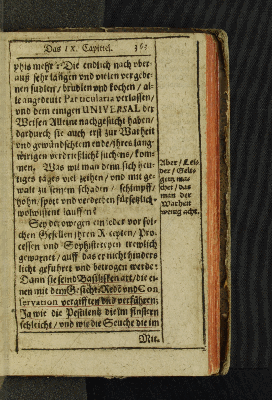 Das IX. Capitel. 363
phis mehr: Die endlich nach vber-
auß sehr langen vnd vielen vergebe-
nen sudlen / brudlen vnd kochen / al-
le angedeut Particularia verlassen /
vnd dem einigen UNIVERSAL der
Weisen Alleine nachgesucht haben /
dardurch sie auch erst zur Warheit
vnd gewündschtem ende / ihres lang-
wirigen verdrießlichē suchens / kom-
men. Was wil man denn sich heu-
tiges tages viel zeihen / vnd mit ge-
walt zu seinem schaden / schimpff /
hohn / spott vnd verderben fürsetzlich-
wolwissent lauffen?
Sey derowegen ein jeder vor sol-
chen Gesellen ihren Recepten / Pro-
cessen vnd Sophistereyen trewlich
gewarnet / auff das er nicht hinders
licht geführet vnd betrogen werde:
Dann sie seind Basilisken art / die ei-
nen mit dem Gesicht / Rede vnd Con
servation vergifften vnd verführen:
Ja wie die Pestilentz die im finstern
schleicht / vnd wie die Seuche die im
Mit.
Aber / Leis
der / Gelo
gens mas
chet / das
man der
Warheit
wenig acht.